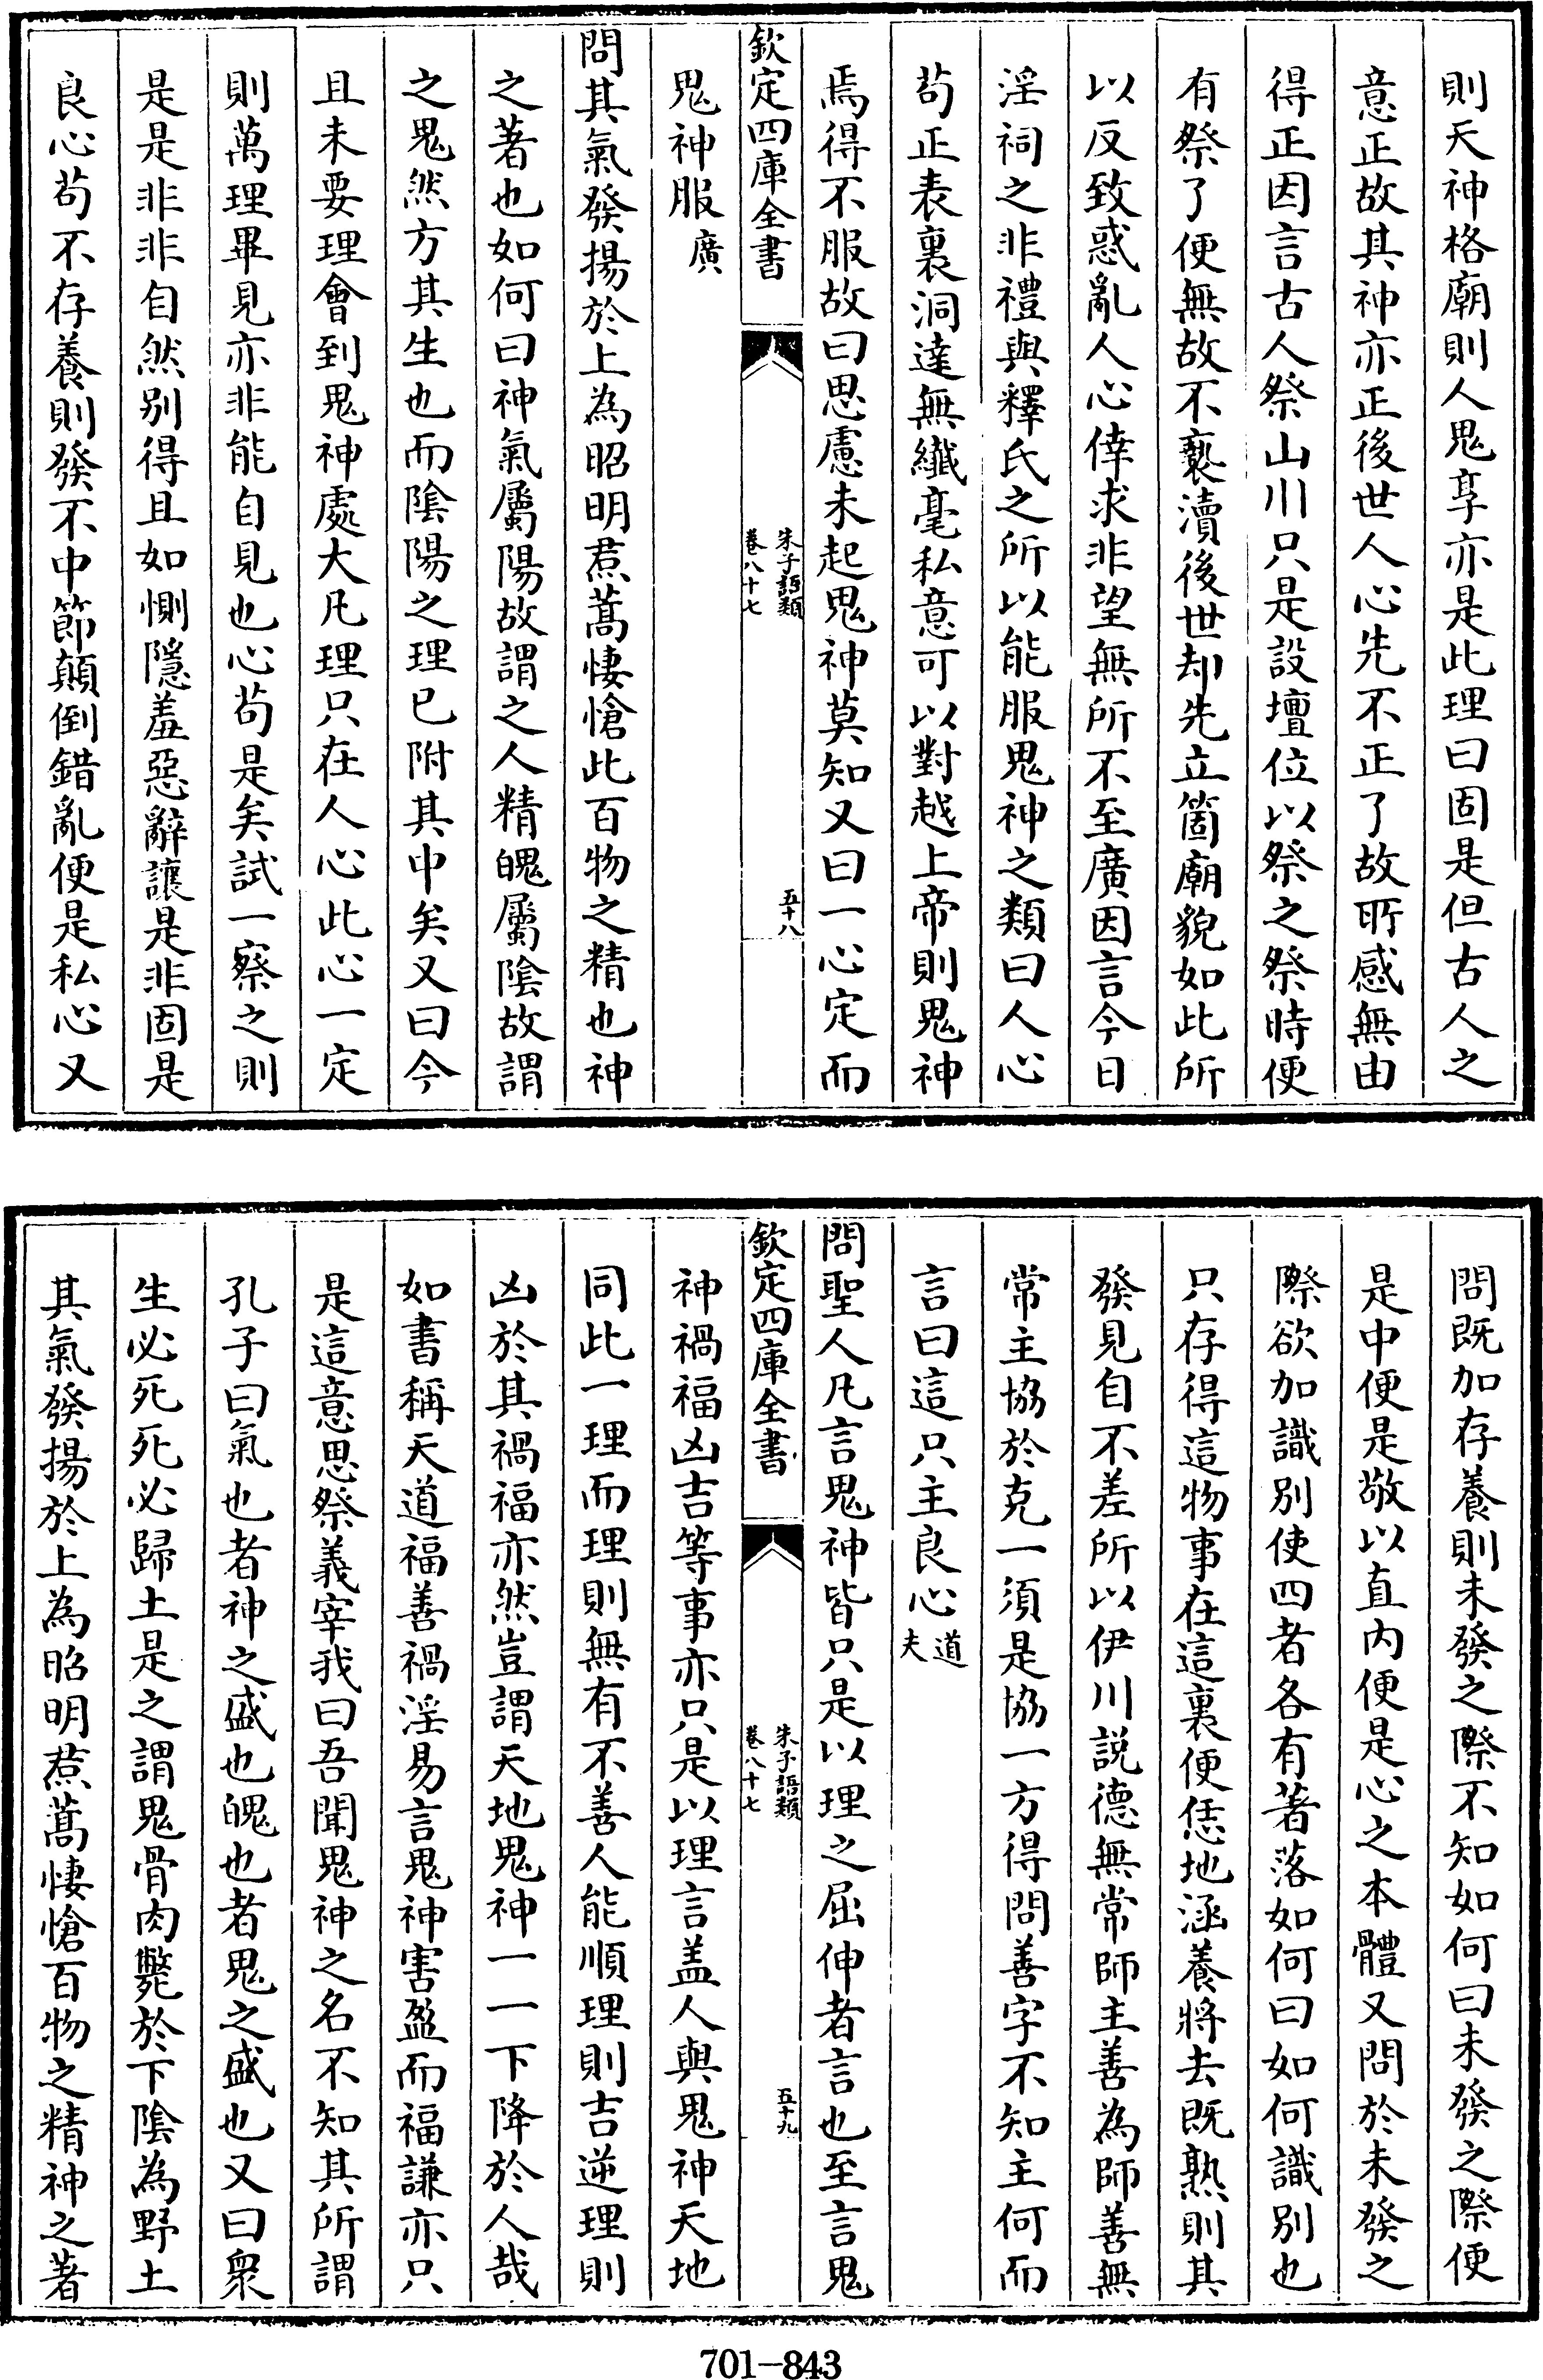 則天神格廟則人鬼享亦是此理曰固是但古人之
意正故其神亦正後世人心先不正了故所感無由
得正因言古人祭山川只是設壇位以祭之祭時便
有祭了便無故不褻瀆後世却先立箇廟貌如此所
以反致惑亂人心倖求非望無所不至廣因言今日
淫祠之非禮與釋氏之所以能服鬼神之類曰人心
苟正表裏洞達無纖毫私意可以對越上帝則鬼神
焉得不服故曰思慮未起鬼神莫知又曰一心定而
欽定四庫全書
朱子語類
卷八十七
五十八
鬼神服廣
問其氣發揚於上為昭明焄蒿悽愴此百物之精也神
之著也如何曰神氣屬陽故謂之人精魄屬陰故謂
之鬼然方其生也而陰陽之理已附其中矣又曰今
且未要理會到鬼神處大凡理只在人心此心一定
則萬理畢見亦非能自見也心苟是矣試一察之則
是是非非自然别得且如惻隱羞惡辭讓是非固是
良心苟不存養則發不中節顛倒錯亂便是私心又
問既加存養則未發之際不知如何曰未發之際便
是中便是敬以直内便是心之本體又問於未發之
際欲加識别使四者各有著落如何曰如何識别也
只存得這物事在這裏便恁地涵養將去既熟則其
發見自不差所以伊川説德無常師主善為師善無
常主協於克一須是協一方得問善字不知主何而
言曰這只主良心道夫
問聖人凡言鬼神皆只是以理之屈伸者言也至言鬼
欽定四庫全書
朱子語類
卷八十七
五十九
神禍福凶吉等事亦只是以理言盖人與鬼神天地
同此一理而理則無有不善人能順理則吉逆理則
凶於其禍福亦然豈謂天地鬼神一一下降於人哉
如書稱天道福善禍淫易言鬼神害盈而福謙亦只
是這意思祭義宰我曰吾聞鬼神之名不知其所謂
孔子曰氣也者神之盛也魄也者鬼之盛也又曰衆
生必死死必歸土是之謂鬼骨肉斃於下陰為野土
其氣發揚於上為昭明焄蒿悽愴百物之精神之著
701-843